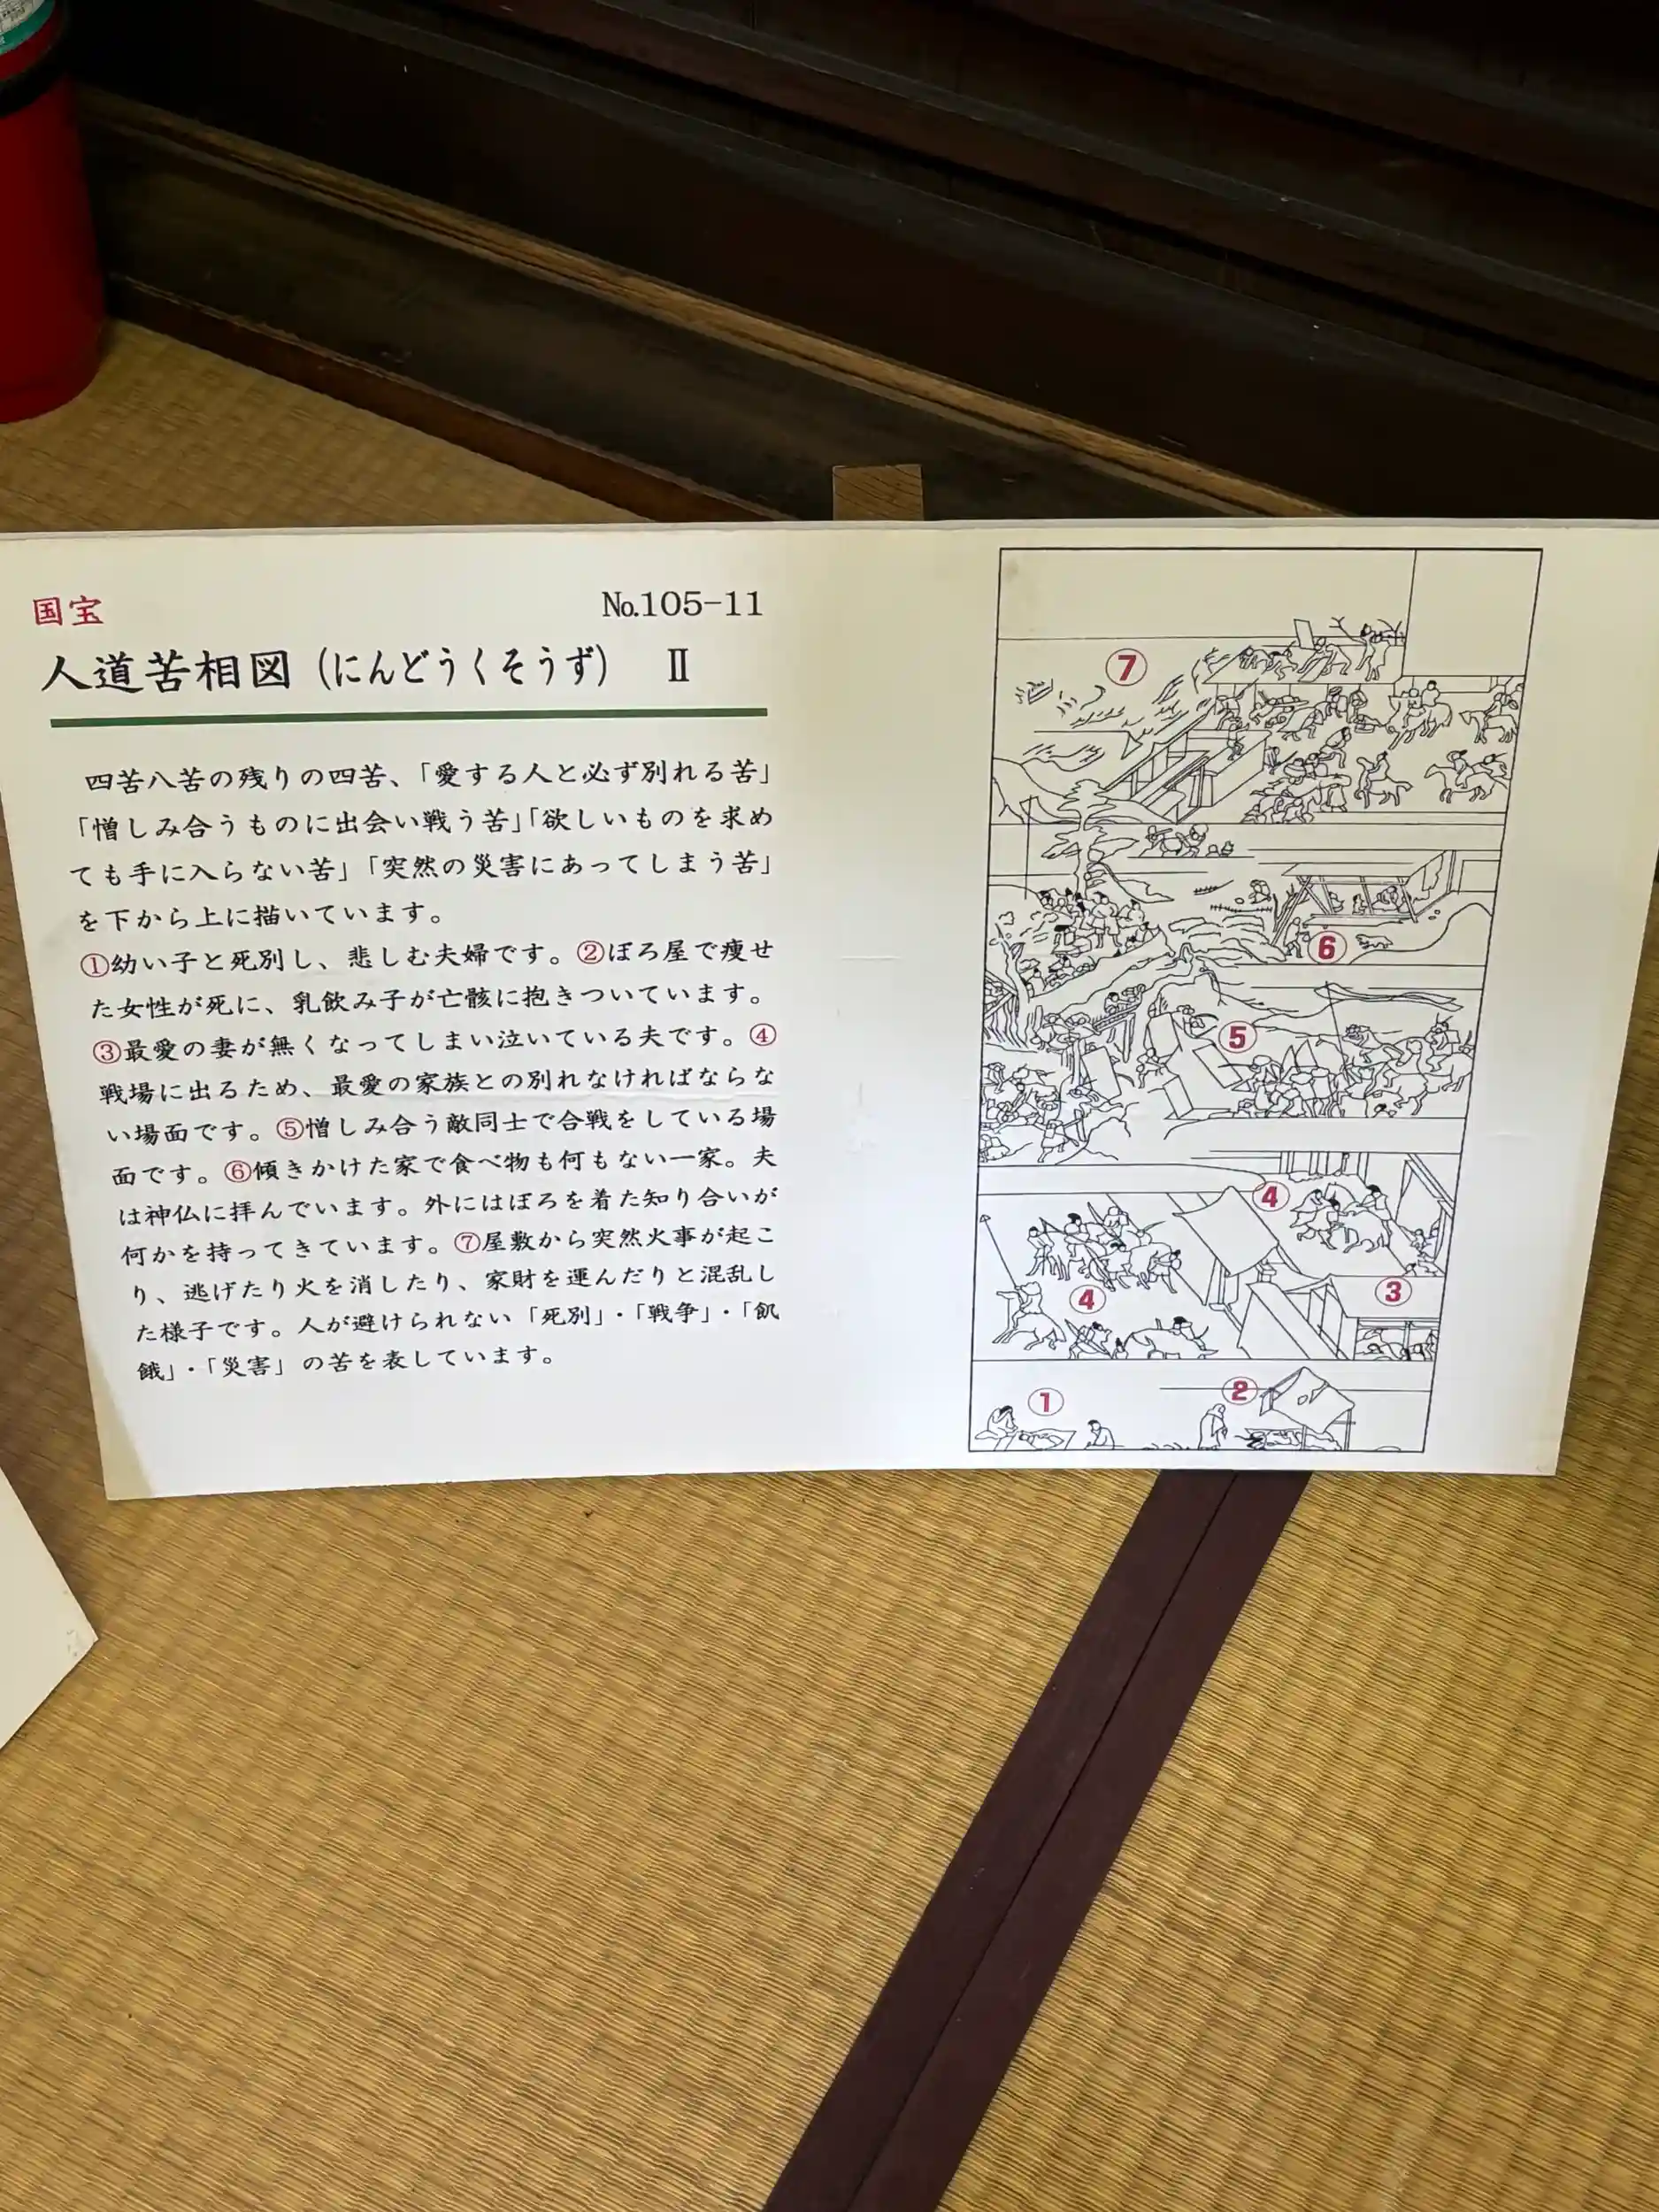 国宝
No.105-11
人道苦相図（にんどうくそうず） Ⅱ
四苦八苦の残りの四苦、「愛する人と必ず別れる苦」
「憎しみ合うものに出会い戦う苦」「欲しいものを求め
ても手に入らない苦」「突然の災害にあってしまう苦」
を下から上に描いています。
①幼い子と死別し、悲しむ夫婦です。②ぼろ屋で痩せ
た女性が死に、乳飲み子が亡骸に抱きついています。
③最愛の妻が無くなってしまい泣いている夫です。④
戦場に出るため、最愛の家族との別れなければならな
い場面です。⑤憎しみ合う敵同士で合戦をしている場
面です。⑥傾きかけた家で食べ物も何もない一家。夫
は神仏に拝んでいます。外にはぼろを着た知り合いが
何かを持ってきています。⑦屋敷から突然火事が起こ
り、逃げたり火を消したり、家財を運んだりと混乱し
た様子です。人が避けられない「死別」・「戦争」・「飢
餓」・「災害」の苦を表しています。
⑦
⑥
⑤
④
④
③
②
①